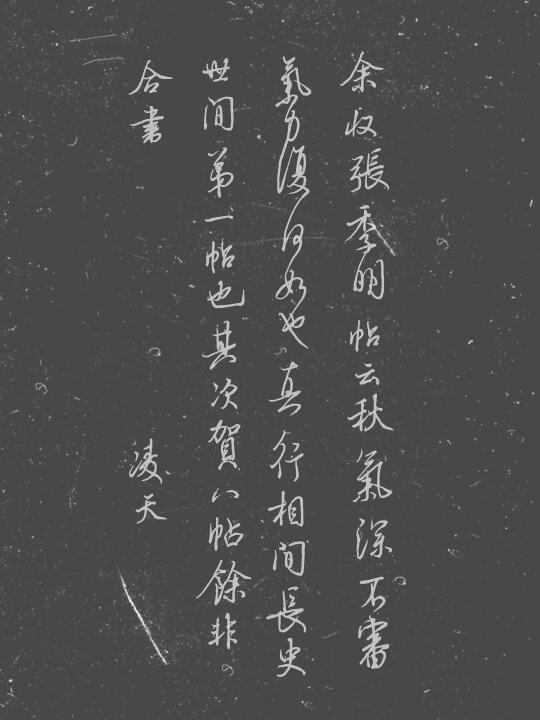 余收張季明帖云秋氣深不審
氣力復何如也真行相間長史
世間第一帖也其次賀八帖餘非
合書
凌天